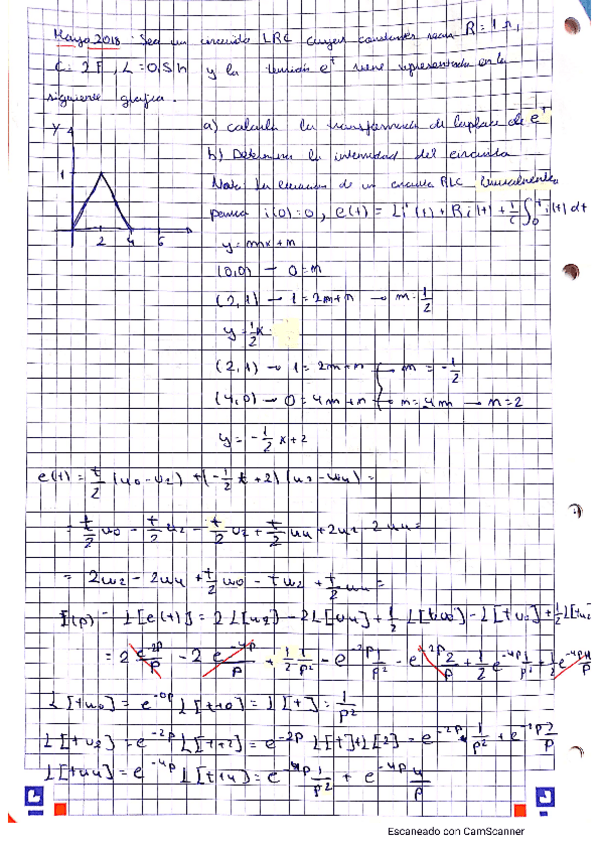 Mayo 2018: Sea un circuito LRC cuyas constantes sean R=1 Ω,
C=2F, L=0,5h y la tensión e^t viene representada en la
siguiente gráfica.
a) calcula la transformada de Laplace de e^t
b) Determina la intensidad del circuito
Nota: La ecuación de un circuito RLC inicialmente
i(0)=0, e(t) = Li'(t) + Ri(t) + 1/C ∫₀ᵗ i(t) dt
Y
1
2 4 6
y=mx+n
(0,0) → 0=n
(2,1) → 1=2m+n → m=1/2
y=1/2x
(2,1) → 1=2m+n → m = -1/2
(4,0) → 0=4m+n → n=4m → n=2
y = -1/2 x+2
e(t) = t/2 (u0-u2) + (-1/2 t+2) (u2-u4) =
= t/2 u0 - t/2 u2 - t/2 u2 + t/2 u4 + 2u2 - 2u4 =
= 2u2 - 2u4 + t/2 u0 - tu2 + t/2 u4 =
E(p) = L[e(t)] = 2L[u2] - 2L[u4] + 1/2 L[tu0] - L[tu2] + 1/2 L[tu4]
= 2 e^-2p/p - 2 e^-4p/p + 1/2 1/p² - e^-2p 1/p² - e^-2p 2/p + 1/2 e^-4p 1/p² + 1/2 e^-4p 4/p
L[tu0] = e^-0p L[t+0] = L[t] = 1/p²
L[tu2] = e^-2p L[t+2] = e^-2p L[t]+L[2] = e^-2p · 1/p² + e^-2p 2/p
L[tu4] = e^-4p L[t+4] = e^-4p 1/p² + e^-4p 4/p
Escaneado con CamScanner